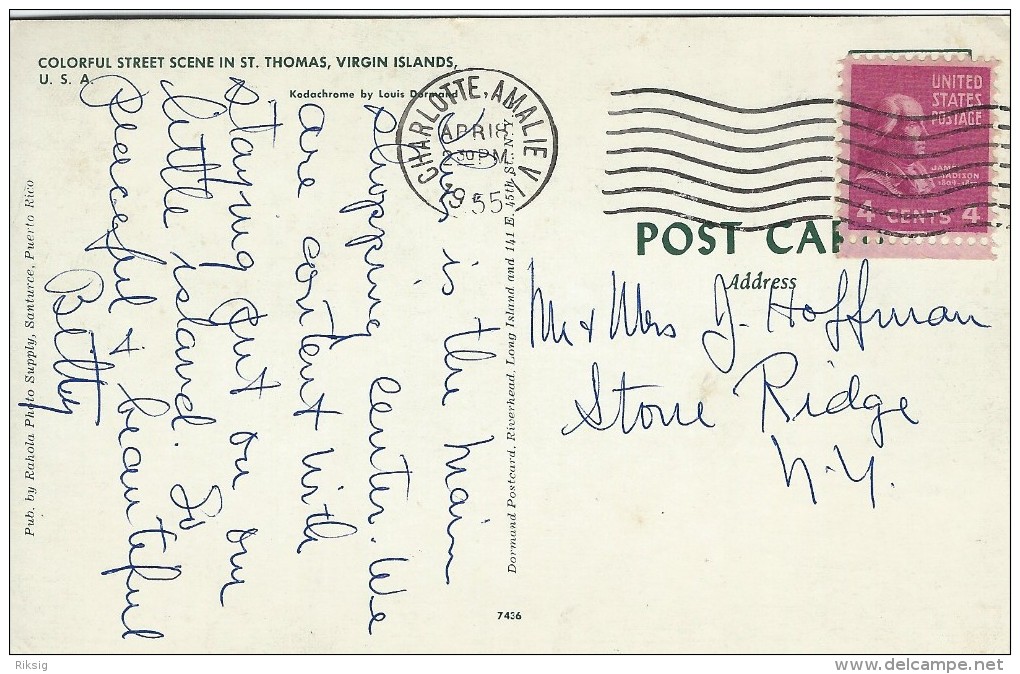 COLORFUL STREET SCENE IN ST. THOMAS, VIRGIN ISLANDS,
U. S. A.
Kodachrome by Louis Dormand
This is the main
shopping center. We
are content with
staying put on our
little island. So
peaceful & beautiful
Betty
Pub. by Rahola Photo Supply, Santurce, Puerto Rico
Dormand Postcard, Riverhead, Long Island and 141 E. 45th St., N.Y.
7436
CHARLOTTE AMALIE V. I.
APR 18
2 30 PM
1955
UNITED
STATES
POSTAGE
JAMES
MADISON
4 CENTS 4
POST CARD
Address
Mr & Mrs J. Hoffman
Stone Ridge
N.Y.
Riksig
www.delcampe.net